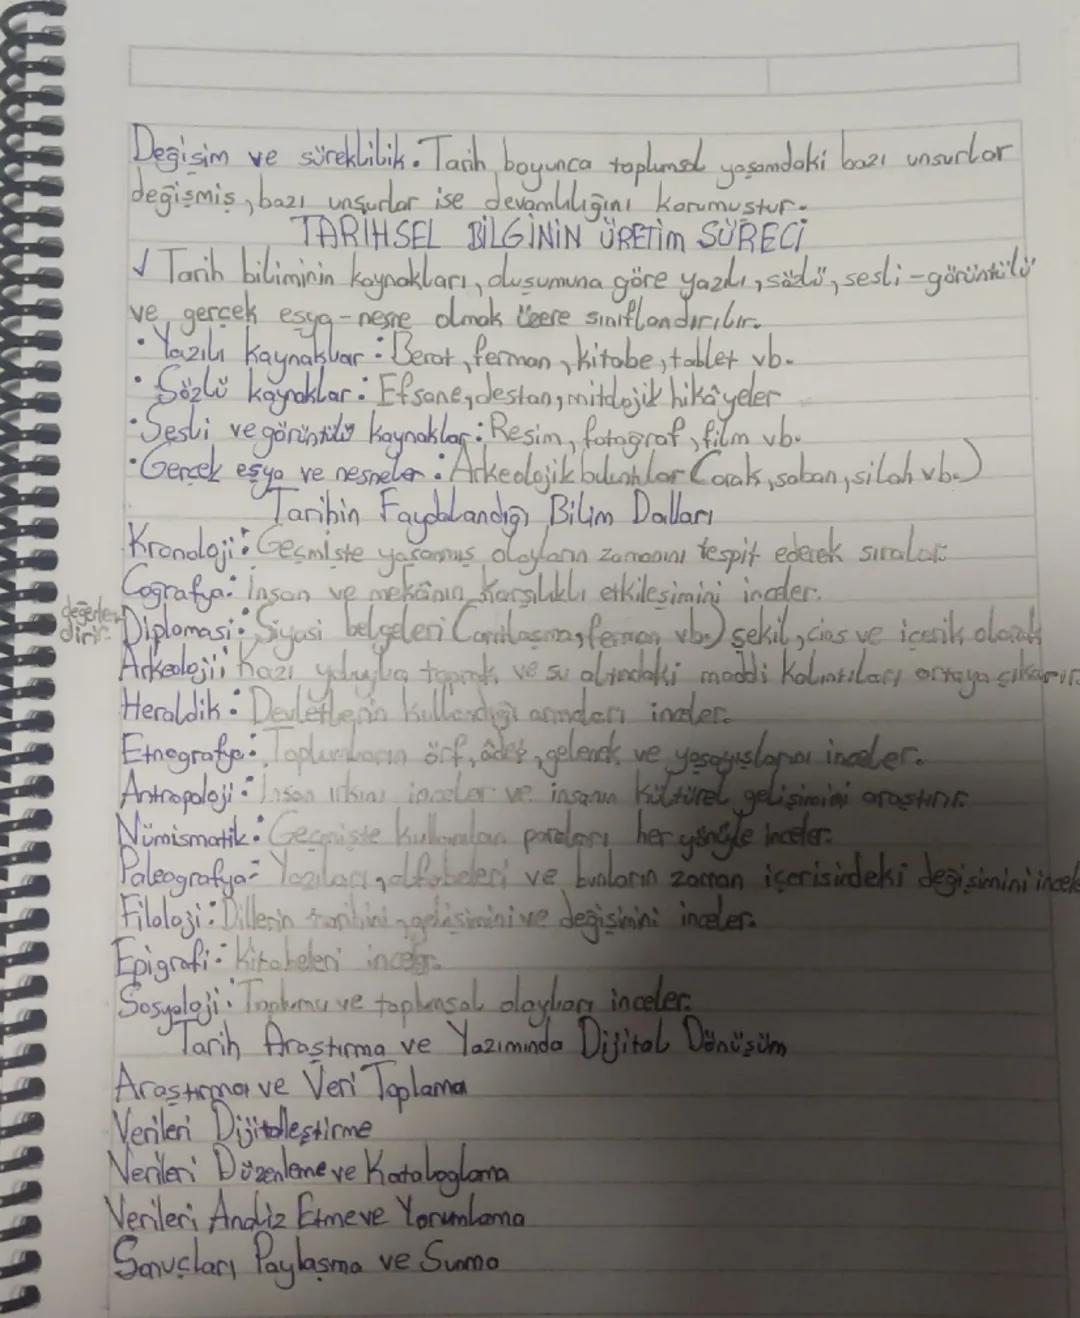 Değişim ve süreklilik. Tarih boyunca toplumsal yaşamdaki bazı unsurlar
değişmiş, bazı unsurlar ise devamlılığını korumuştur.
TARİHSEL BİLGİNİN ÜRETİM SÜRECİ
√ Tarih biliminin kaynakları, oluşumuna göre yazılı, sözlü, sesli-görüntülü
ve gerçek eşya-nesne olmak üzere sınıflandırılır.
• Yazılı kaynaklar: Berat, ferman, kitabe, tablet vb.
• Sözlü kaynaklar: Efsane, destan, mitolojik hikâyeler
• Sesli ve görüntülü kaynaklar: Resim, fotoğraf, film vb.
• Gerçek eşya ve nesneler: Arkeolojik buluntular (orak, saban, silah vb.)
Tarihin Faydalandığı Bilim Dalları
Kronoloji: Geçmişte yaşanmış olayların zamanını tespit ederek sıralar.
Coğrafya: İnsan ve mekânın karşılıklı etkileşimini inceler.
Diplomasi: Siyasi belgeleri (antlaşma, ferman vb.) şekil, cins ve içerik olarak
değerlen-
dirir.
Arkeoloji: Kazı yoluyla toprak ve su altındaki maddi kalıntıları ortaya çıkarır.
Heraldik: Devletlerin kullandığı armaları inceler.
Etnografya: Toplumların örf, âdet, gelenek ve yaşayışlarını inceler.
Antropoloji: İnsan ırkını inceler ve insanın kültürel gelişimini araştırır.
Nümismatik: Geçmişte kullanılan paraları her yönüyle inceler.
Paleografya: Yazıları, alfabeleri ve bunların zaman içerisindeki değişimini incele
Filoloji: Dillerin tarihini, gelişimini ve değişimini inceler.
Epigrafi: Kitabeleri inceler.
Sosyoloji: Toplumu ve toplumsal olayları inceler.
Tarih Araştırma ve Yazımında Dijital Dönüşüm
Araştırma ve Veri Toplama
Verileri Dijitalleştirme
Verileri Düzenleme ve Kataloglama
Verileri Analiz Etme ve Yorumlama
Sonuçları Paylaşma ve Sunma